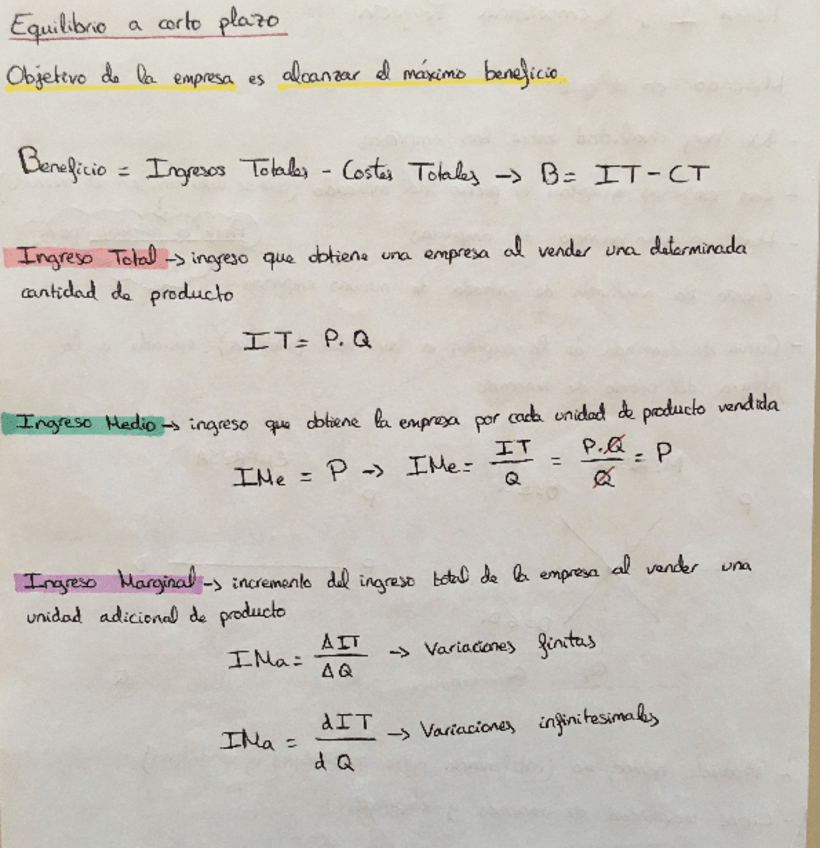 Equilibrio a corto plazo
Objetivo de la empresa es alcanzar el máximo beneficio
Beneficio = Ingresos Totales - Costes Totales → B = IT - CT
Ingreso Total → ingreso que obtiene una empresa al vender una determinada
cantidad de producto
IT = P. Q
Ingreso Medio → ingreso que obtiene la empresa por cada unidad de producto vendida
IMe = P → IMe = IT/Q = P.Q/Q = P
Ingreso Marginal → incremento del ingreso total de la empresa al vender una
unidad adicional de producto
IMa = ΔIT/ΔQ → Variaciones finitas
IMa = dIT/dQ → Variaciones infinitesimales